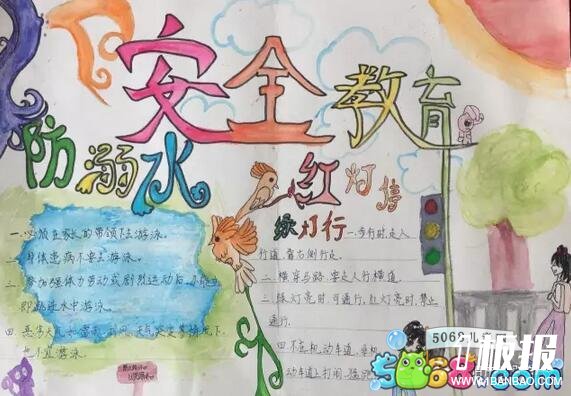 安全教育
防溺水
红灯停
绿灯行
一、必须在家长的带领下去游泳。
二、身体患病不要去游泳。
三、参加强体力劳动或剧烈运动后,不能立
即跳进水中游泳。
四、恶劣天气如雷雨、天气突变等情况下,
也不宜游泳。
一、步行时走人
行道,靠右侧行走。
二、横穿马路,要走人行横道
三、绿灯亮时,可通行,红灯亮时,禁止
通行.
四、不在机动车道、
动车道上打闹、
5068儿童网
5068.com
板报
WWW.1BANBAO.COM